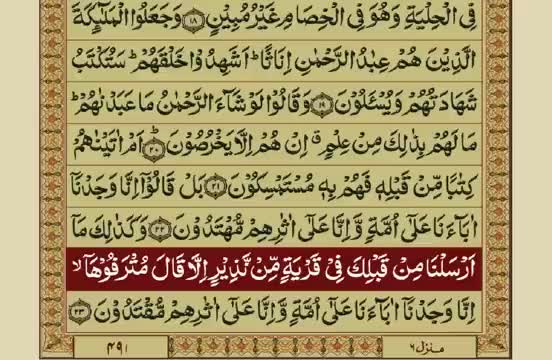 فِى الْحِلْيَةِ وَهُوَ فِى الْخِصَامِ غَيْرُ مُبِيْنٍ ﴿۱۸﴾ وَجَعَلُوا الْمَلٰٓئِكَةَ
الَّذِيْنَ هُمْ عِبٰدُ الرَّحْمٰنِ اِنَاثًا ؕ اَشَهِدُوْا خَلْقَهُمْ ؕ سَتُكْتَبُ
شَهَادَتُهُمْ وَيُسْئَلُوْنَ ﴿۱۹﴾ وَقَالُوْا لَوْ شَآءَ الرَّحْمٰنُ مَا عَبَدْنٰهُمْ ؕ
مَا لَهُمْ بِذٰلِكَ مِنْ عِلْمٍ ۗ اِنْ هُمْ اِلَّا يَخْرُصُوْنَ ﴿۲۰﴾ اَمْ اٰتَيْنٰهُمْ
كِتٰبًا مِّنْ قَبْلِهٖ فَهُمْ بِهٖ مُسْتَمْسِكُوْنَ ﴿۲۱﴾ بَلْ قَالُوْٓا اِنَّا وَجَدْنَآ
اٰبَآءَنَا عَلٰٓى اُمَّةٍ وَّاِنَّا عَلٰٓى اٰثٰرِهِمْ مُّهْتَدُوْنَ ﴿۲۲﴾ وَكَذٰلِكَ مَآ
اَرْسَلْنَا مِنْ قَبْلِكَ فِيْ قَرْيَةٍ مِّنْ نَّذِيْرٍ اِلَّا قَالَ مُتْرَفُوْهَآ ۙ
اِنَّا وَجَدْنَآ اٰبَآءَنَا عَلٰٓى اُمَّةٍ وَّاِنَّا عَلٰٓى اٰثٰرِهِمْ مُّقْتَدُوْنَ ﴿۲۳﴾
منزل ۶
۴۹۱